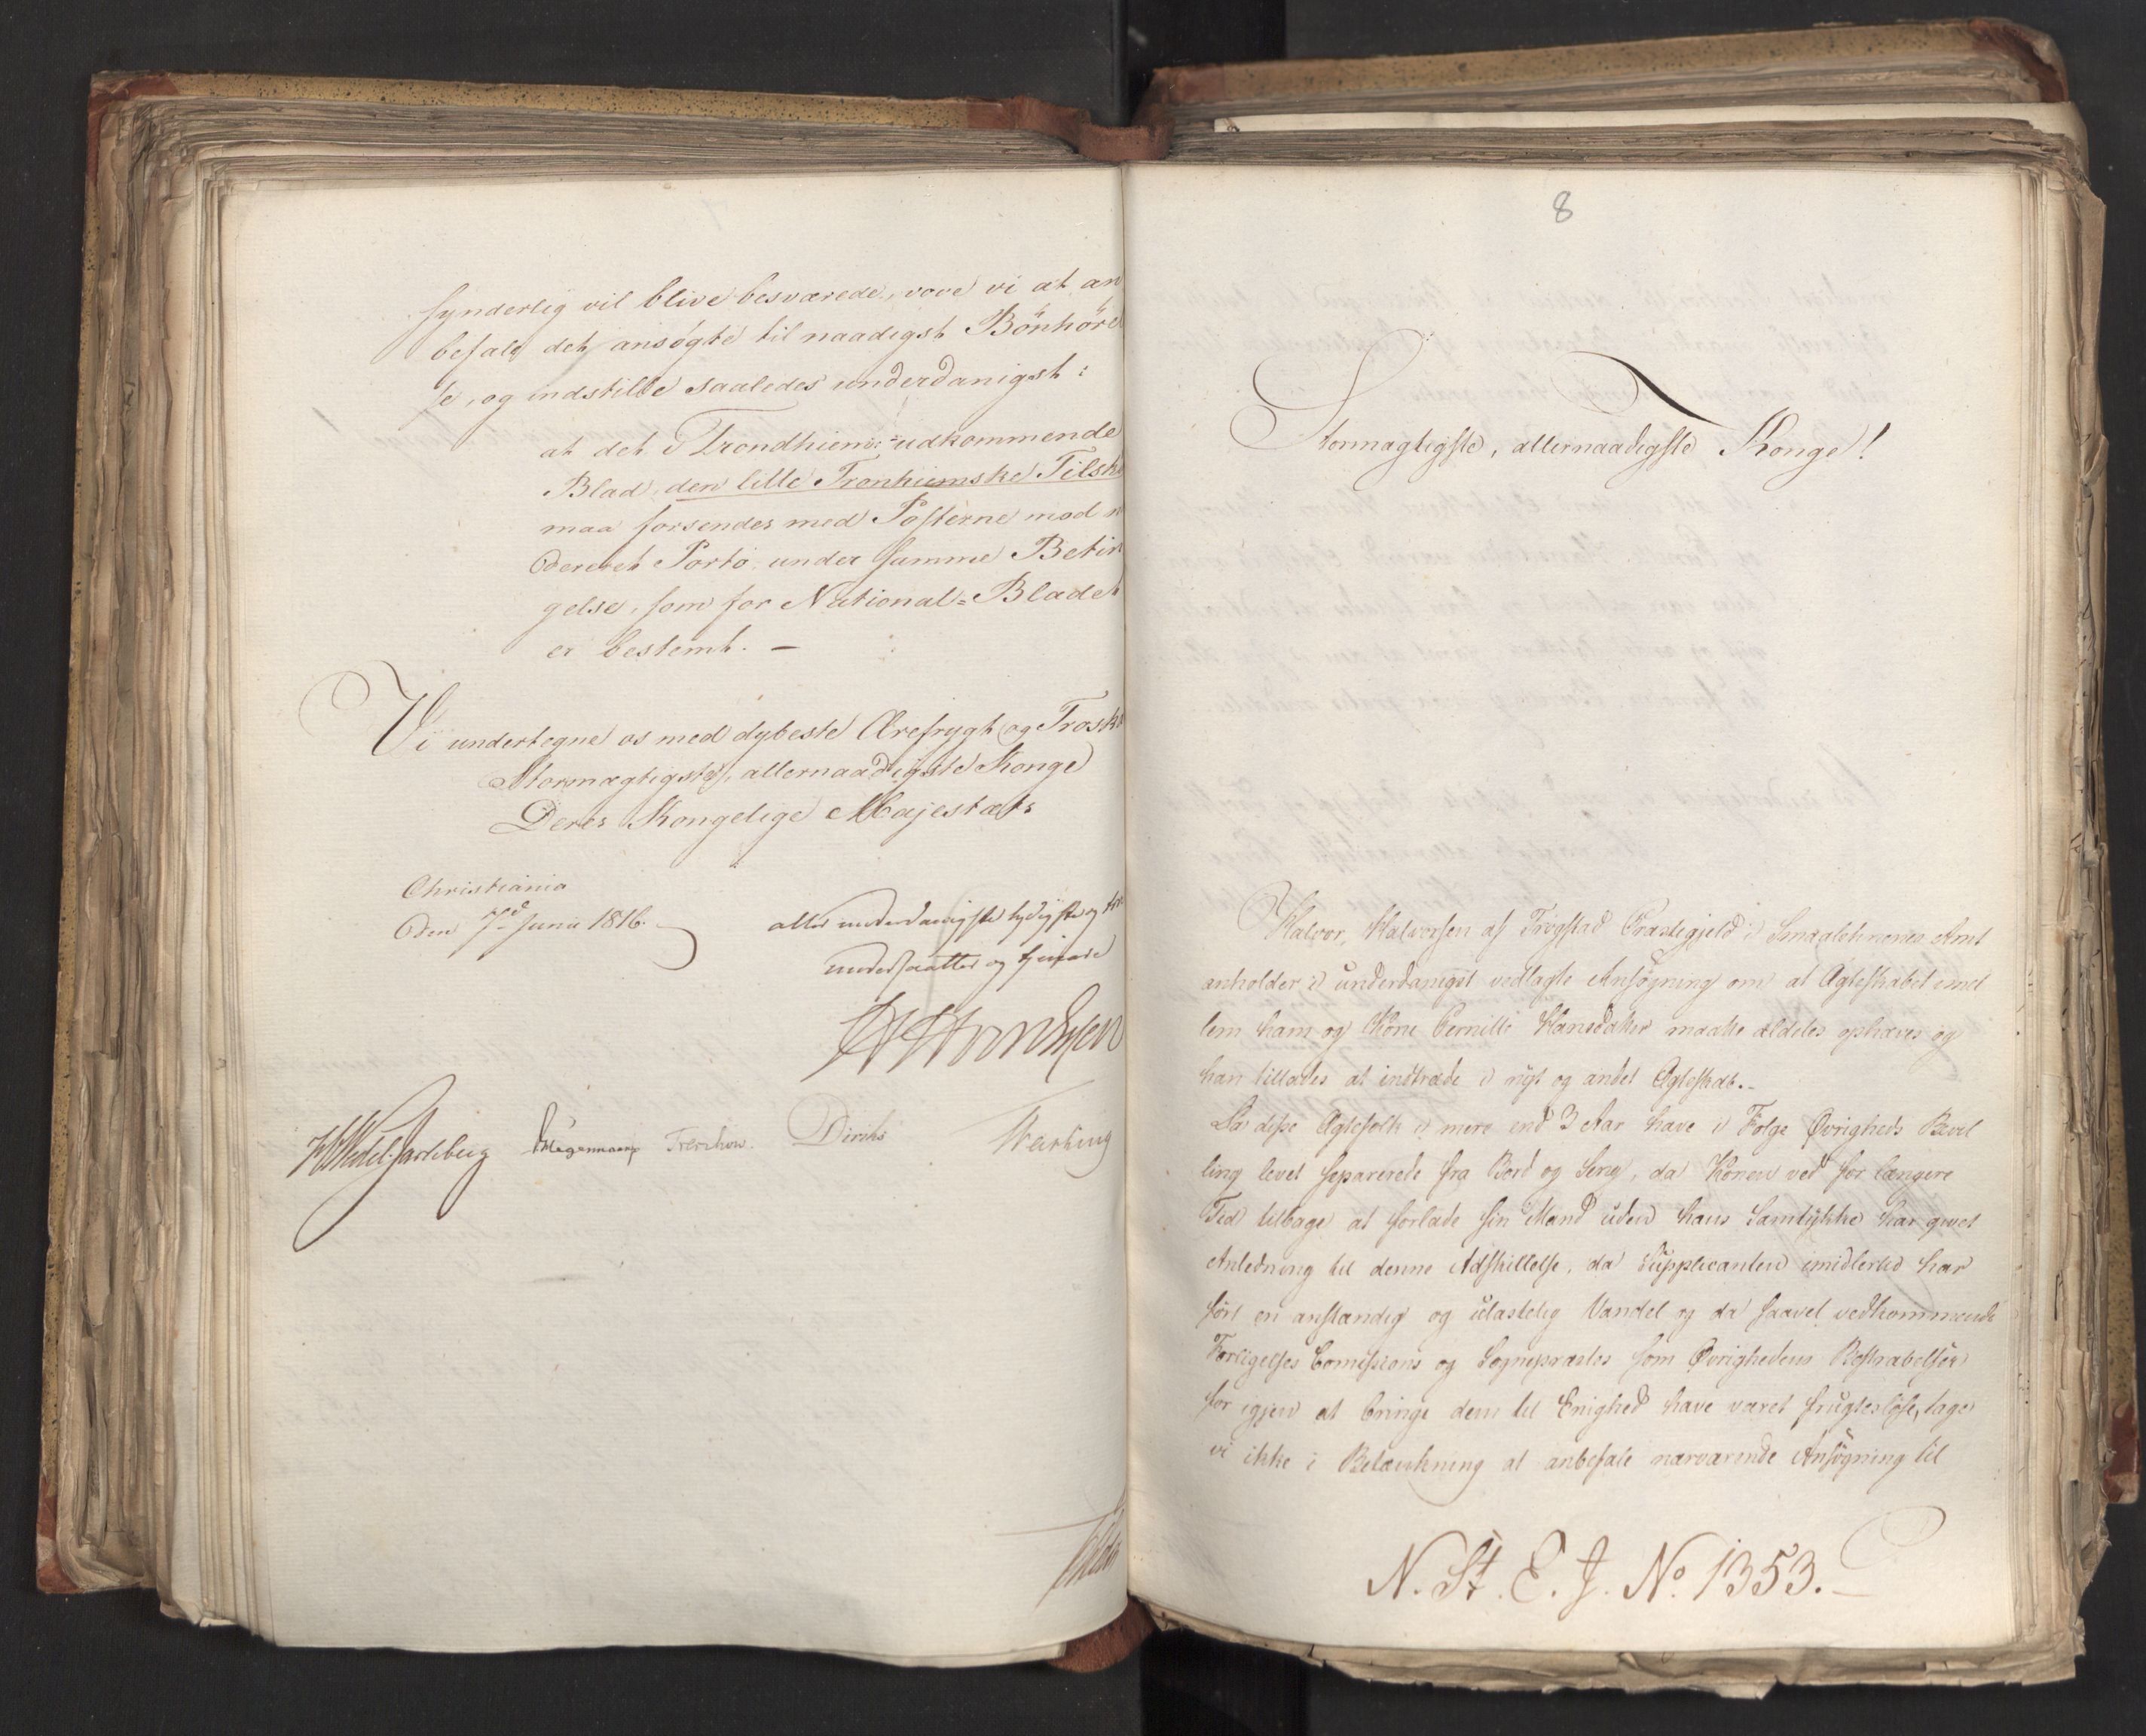 synderlig vil blive besværede, vove vi at an
befale det ansøgte til naadigst Bönhörel
se, og indstille saaledes underdanigst:
at det i Trondhiem udkommende
Blad, den lille Tronhiemske Tilsk
maa forsendes med Posterne mod
dereret Porto under samme Betin
gelse, som for National-Bladet
er bestemt. –
Vi undertegne os med dybeste Ærefrygt og Trosk
Stormægtigste, allernaadigste Konge
Deres Kongelige Majestæts
Christiania
den 7d Juni 1816.
aller underdanigste lydigste og
undersaatter og tjenere
HWedel Jarlsberg Hegermann Treschow. Diriks
8
Stormægtigste, allernaadigste Konge!
Halvor Halvorsen af Trøgstad Præstegjeld i Smaalehnenes Amt
anholder i underdanigst vedlagte Ansøgning om at Ægteskabet imel
lem ham og Kone Pernille Hansdatter maatte aldeles ophæves og
han tillades at indtræde i nyt og andet Ægteskab.-
Da disse Ægtefolk i mere end 3 Aar have i Følge Øvrigheds Bevil
ling levet separerede fra Bord og Seng, da Konen ved for længere
Tid tilbage at forlade sin Mand uden hans Samtykke har givet
Anledning til denne Adskillelse, da Supplicanten imidlertid har
ført en anstændig og ulastelig Vandel og da saavel vedkommende
Forligelses Comissions og Sognepræstes som Øvrighedens Bestræbelser
for igjen at bringe dem til Enighed have været frugtesløse, tage
vi ikke i Betænkning at anbefale nærværende Ansøgning til
N. St. E. J. No 1353.